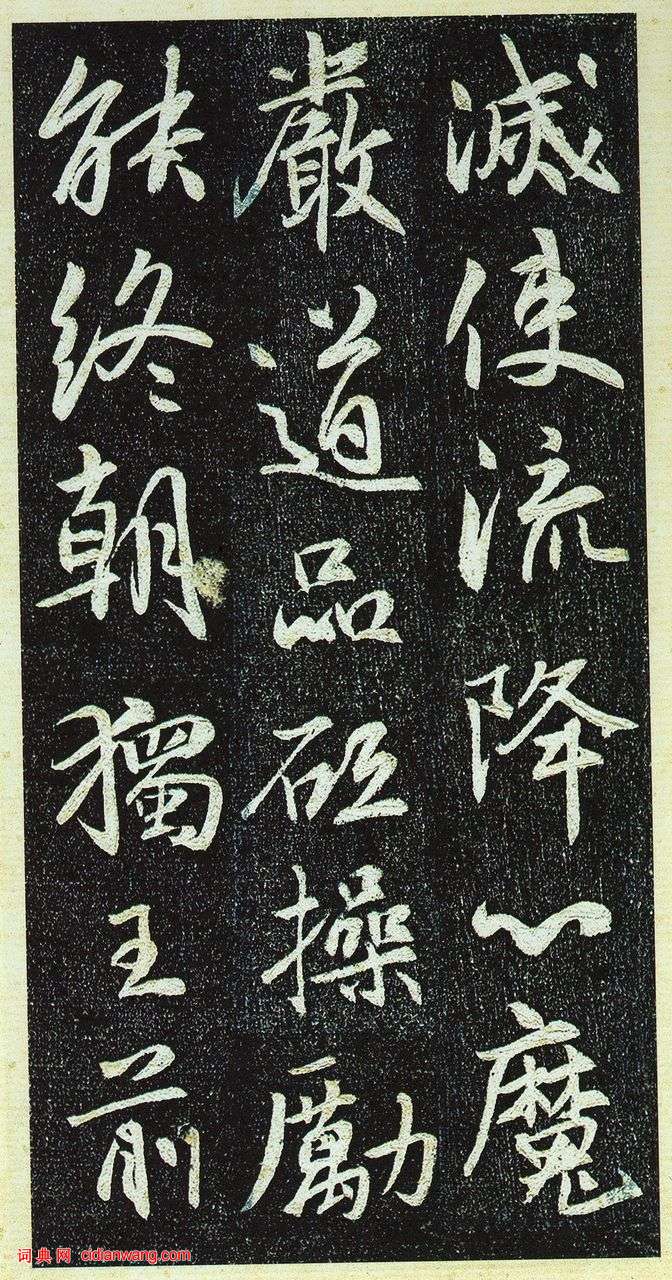 滅使流降心魔
嚴道品砥操勵
能終朝獨王前
词典网 cidianwang.com